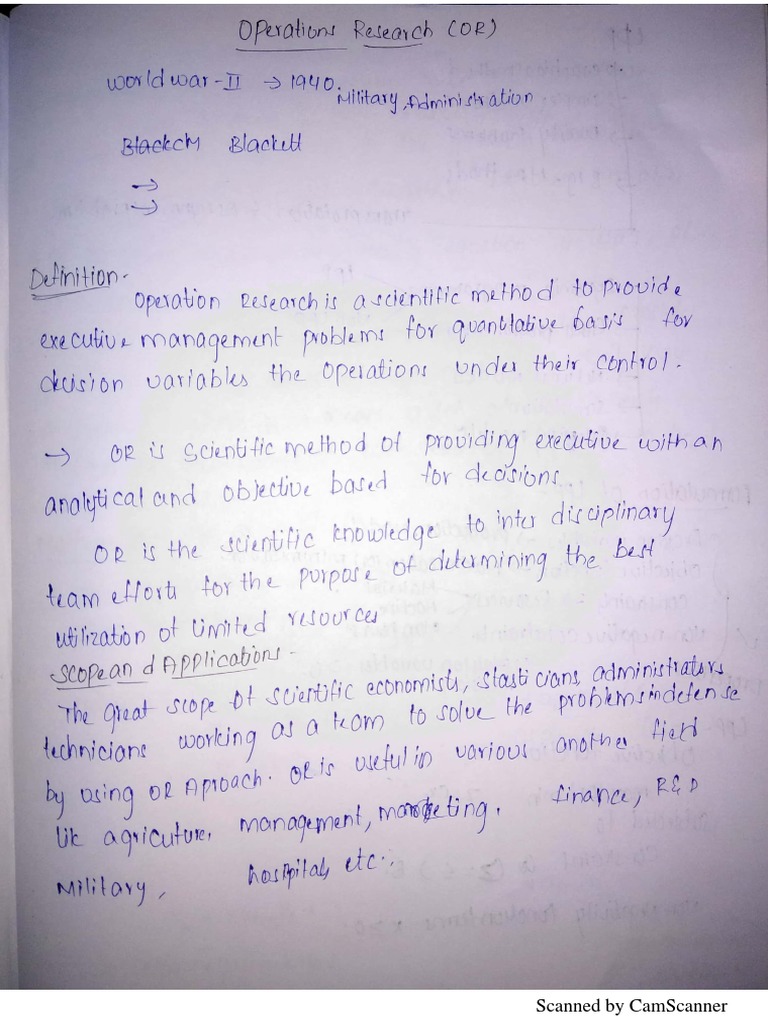 Operations Research (OR)
World war - II → 1940.
Military, Administration
Blackett
→
→
Definition.
Operation Research is a scientific method to provide
executive management problems for quantitative basis for
decision variables the Operations under their control.
→ OR is Scientific method of providing executive with an
analytical and objective based for decisions.
OR is the scientific knowledge to inter disciplinary
team efforts for the purpose of determining the best
utilization of limited resources
Scope and Applications.
The great scope of scientific economists, stasticians, administrators
technicians working as a team to solve the problems in defense
by using OR Aproach. OR is useful in various another field
lik agricuture, management, marketing. finance, R&D
Military, hospital, etc..
Scanned by CamScanner